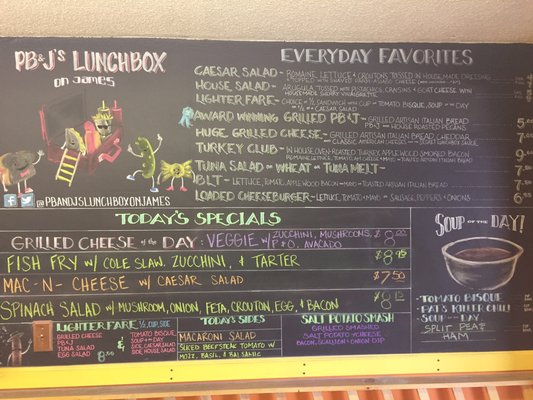 PB&J'S LUNCHBOX
on JAMES
@PBANDJSLUNCHBOXONJAMES
EVERYDAY FAVORITES
CAESAR SALAD - ROMAINE LETTUCE & CROUTONS TOSSED IN HOUSE MADE DRESSING
HOUSE SALAD - ARUGULA, TOSSED WITH PISTACHIOS, CRASINS & GOAT CHEESE WITH
HOUSEMADE SHERRY VINAIGRETTE
LIGHTER FARE - CHOICE ½ SANDWICH WITH CUP TOMATO BISQUE, SOUP of the DAY
or ½ CAESAR SALAD
AWARD WINNING GRILLED PB&J - GRILLED ARTISAN ITALIAN BREAD
PB&J HOUSE ROASTED PECANS
HUGE GRILLED CHEESE - GRILLED ARTISAN ITALIAN BREAD CHEDDAR
CLASSIC AMERICAN CHEESES SECRET LUNCHBOX SAUCE
TURKEY CLUB - IN HOUSE OVEN ROASTED TURKEY, APPLEWOOD SMOKED BACON
ROMAINE LETTUCE, TOMATO, MAYO TOASTED ARTISAN ITALIAN BREAD
TUNA SALAD on WHEAT or TUNA MELT -
BLT - LETTUCE, TOMATO, APPLEWOOD BACON MAYO TOASTED ARTISAN ITALIAN BREAD
LOADED CHEESEBURGER - LETTUCE, TOMATO MAYO SAUTEED PEPPERS & ONIONS
TODAY'S SPECIALS
GRILLED CHEESE of the DAY: VEGGIE W/ ZUCCHINI, MUSHROOMS, P & O, AVACADO $8.00
FISH FRY W/ COLE SLAW, ZUCCHINI, & TARTER $8.95
MAC-N-CHEESE W/ CAESAR SALAD $7.50
SPINACH SALAD W/ MUSHROOM, ONION, FETA, CROUTON, EGG, & BACON
SOUP OF THE DAY!
-TOMATO BISQUE
-PAT'S KILLER CHILI
-SOUP of the DAY
SPLIT PEA &
HAM
LIGHTER FARE ½ CUP, SIDE
GRILLED CHEESE
PB&J
TUNA SALAD
EGG SALAD
&
TOMATO BISQUE
SOUP of the DAY
SIDE CAESAR SALAD
SIDE HOUSE SALAD
TODAY'S SIDES
MACARONI SALAD
SLICED BEEFSTEAK TOMATO W/
MOZZ, BASIL, & BALSAMIC
SALT POTATO SMASH
GRILLED SMASHED
SALT POTATO W/ CHEESE
BACON, SCALLION & ONION DIP